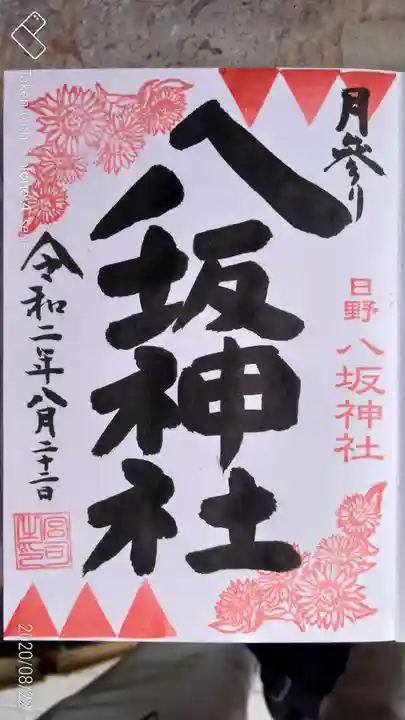 月参り
日野八坂神社
八坂神社
令和二年八月二十二日
宮司之印
Taken with
2020/08/22